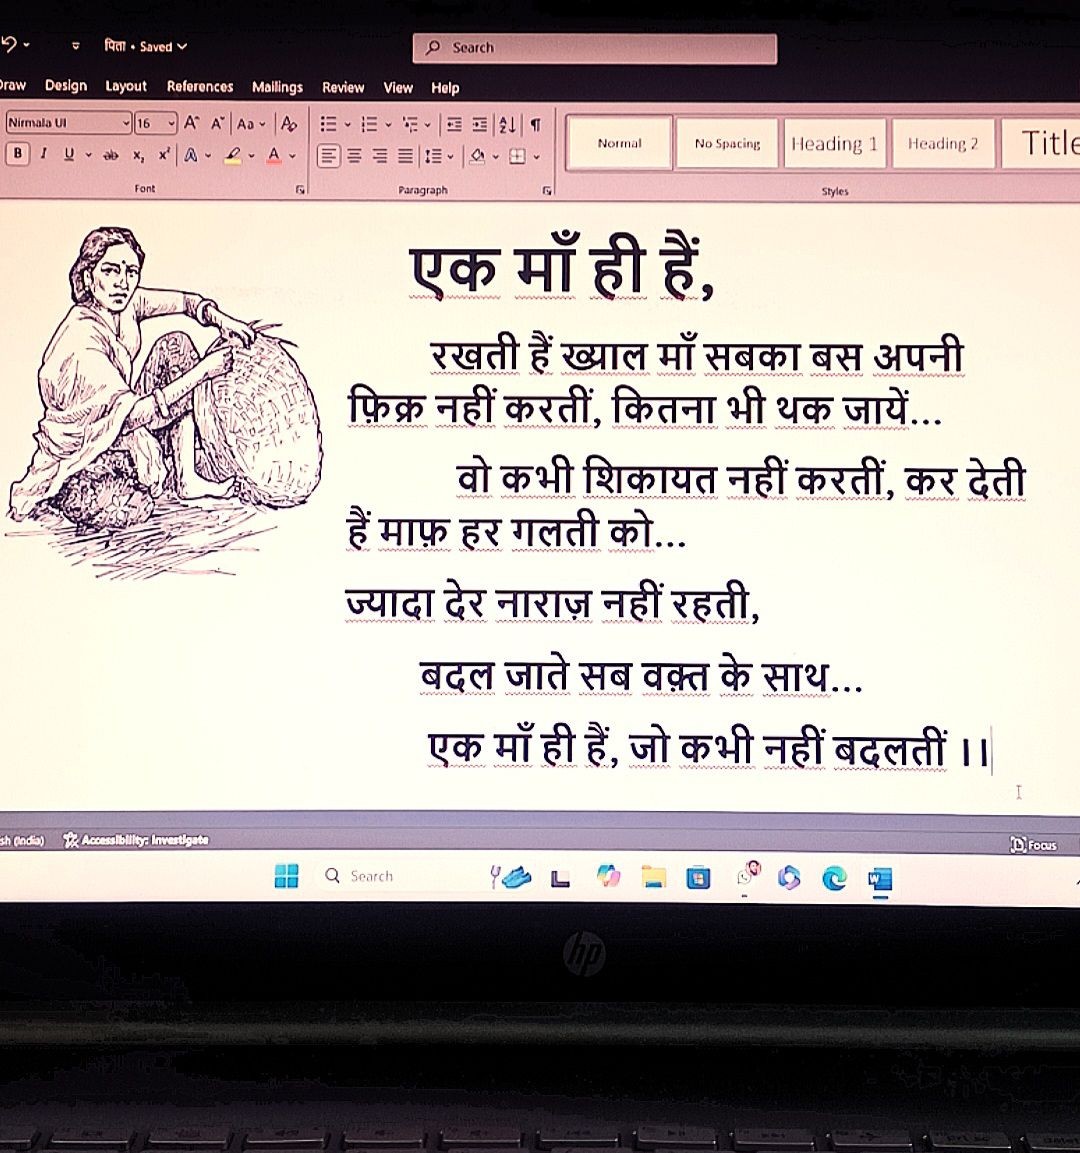 पिता • Saved
Search
Draw Design Layout References Mailings Review View Help
Nirmala UI 16 Aa
B I U ab x₂ x² A A
Normal No Spacing Heading 1 Heading 2 Title
Font Paragraph Styles
एक माँ ही हैं,
रखती हैं ख्याल माँ सबका बस अपनी
फ़िक्र नहीं करतीं, कितना भी थक जायें...
वो कभी शिकायत नहीं करतीं, कर देती
हैं माफ़ हर गलती को...
ज्यादा देर नाराज़ नहीं रहती,
बदल जाते सब वक़्त के साथ...
एक माँ ही हैं, जो कभी नहीं बदलतीं ।।
sh (India) Accessibility: Investigate Focus
Search
hp